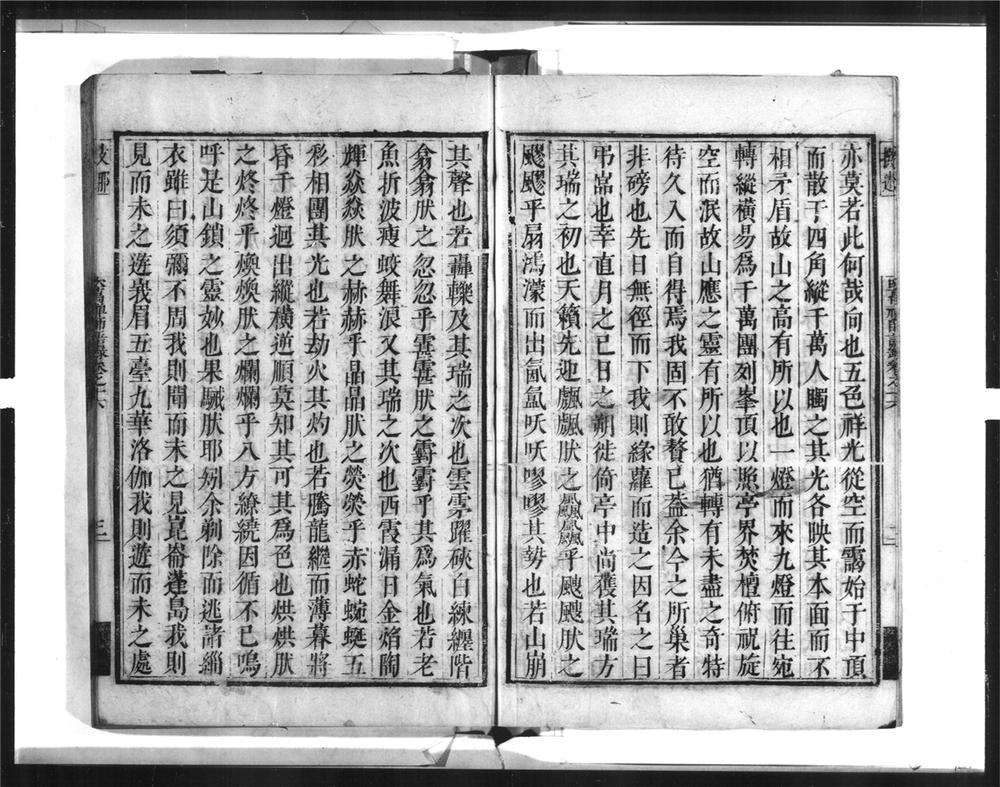 亦莫若此何哉向也五色祥光從空而靄始于中頂
而散于四角縱千萬人矚之其光各映其本面而不
相矛盾故山之高有所以也一燈而來九燈而往宛
轉縱橫易為千萬團列峯頂以照亭界焚檀俯祝旋
空而泯故山應之靈有所以也猶轉有未盡之奇特
待久入而自得焉我固不敢贅已蓋余今之所巢者
非磅也先日無徑而下我則緣蘿而造之因名之曰
弔嵓也幸直月之己日之朔徙倚亭中尚獲其瑞方
其瑞之初也天籟先迎飆飆肰之颿颿平颼颼肰之
飂飂乎扇鴻濛而出氤氳吷吷嘐嘐其勢也若山崩
其聲也若轟轢及其瑞之次也雲雱躍硤白練纏階
翁翁肰之忽忽乎霻霻肰之霨霨乎其為氣也若老
魚折波瘦蛟舞浪又其瑞之次也西霞漏日金焰陶
輝焱焱肰之赫赫乎晶晶肰之熒熒乎赤蛇蜿蜒五
彩相團其光也若劫火其灼也若騰龍繼而薄暮將
昏千燈迴出縱橫逆順莫知其可其為色也烘烘肰
之炵炵乎煥煥肰之爛爛乎八方繚繞因循不已嗚
呼是山鎖之靈妙也果駴肰耶矧余剃除而逃諸緇
衣雖曰須彌不周我則聞而未之見崑崙蓬島我則
見而未之遊峩眉五臺九華洛伽我則遊而未之處
三